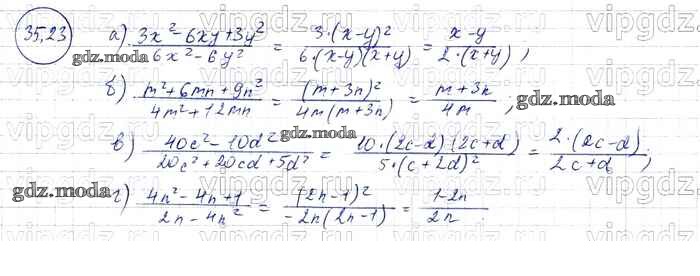 35.23 а) (3x² - 6xy + 3y²)/(6x² - 6y²) = (3·(x-y)²)/(6·(x-y)(x+y)) = (x-y)/(2·(x+y));
gdz.moda
б) (m² + 6mn + 9n²)/(4m² + 12mn) = (m+3n)²/(4m(m+3n)) = (m+3n)/(4m);
gdz.moda
в) (40c² - 10d²)/(20c² + 20cd + 5d²) = (10·(2c-d)(2c+d))/(5·(c+2d)²) = (2·(2c-d))/(2c+d);
gdz.moda
г) (4n² - 4n + 1)/(2n - 4n²) = (2n-1)²/(-2n(2n-1)) = (1-2n)/(2n)
gdz.moda
vipgdz